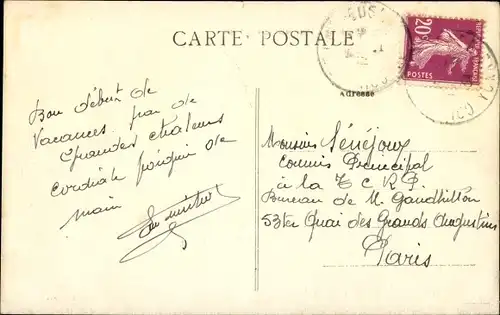 CARTE POSTALE
20c
POSTES
Adresse
Bon début de
Vacances pas de
Grandes chaleurs
Cordiale poignée de
main
Monsieur Sénéjoux
Commis Principal
à la T C R P
Bureau de M. Gandhilhon
53ter Quai des Grands Augustins
Paris